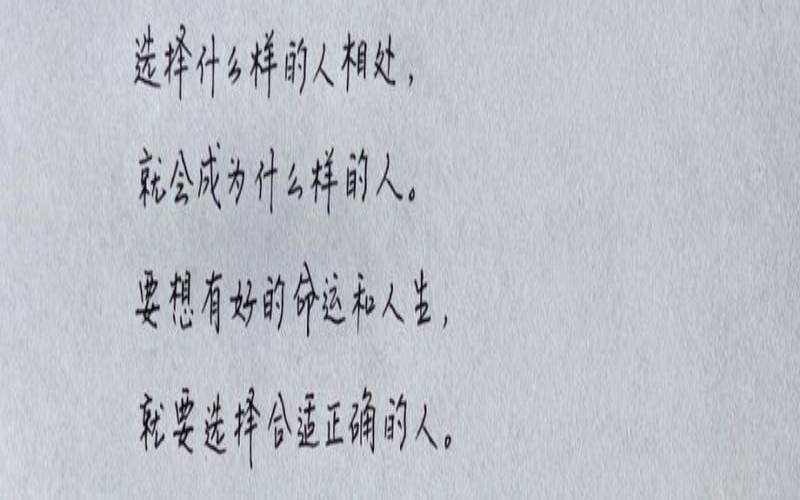 选择什么样的人相处，
就会成为什么样的人。
要想有好的命运和人生，
就要选择合适正确的人。